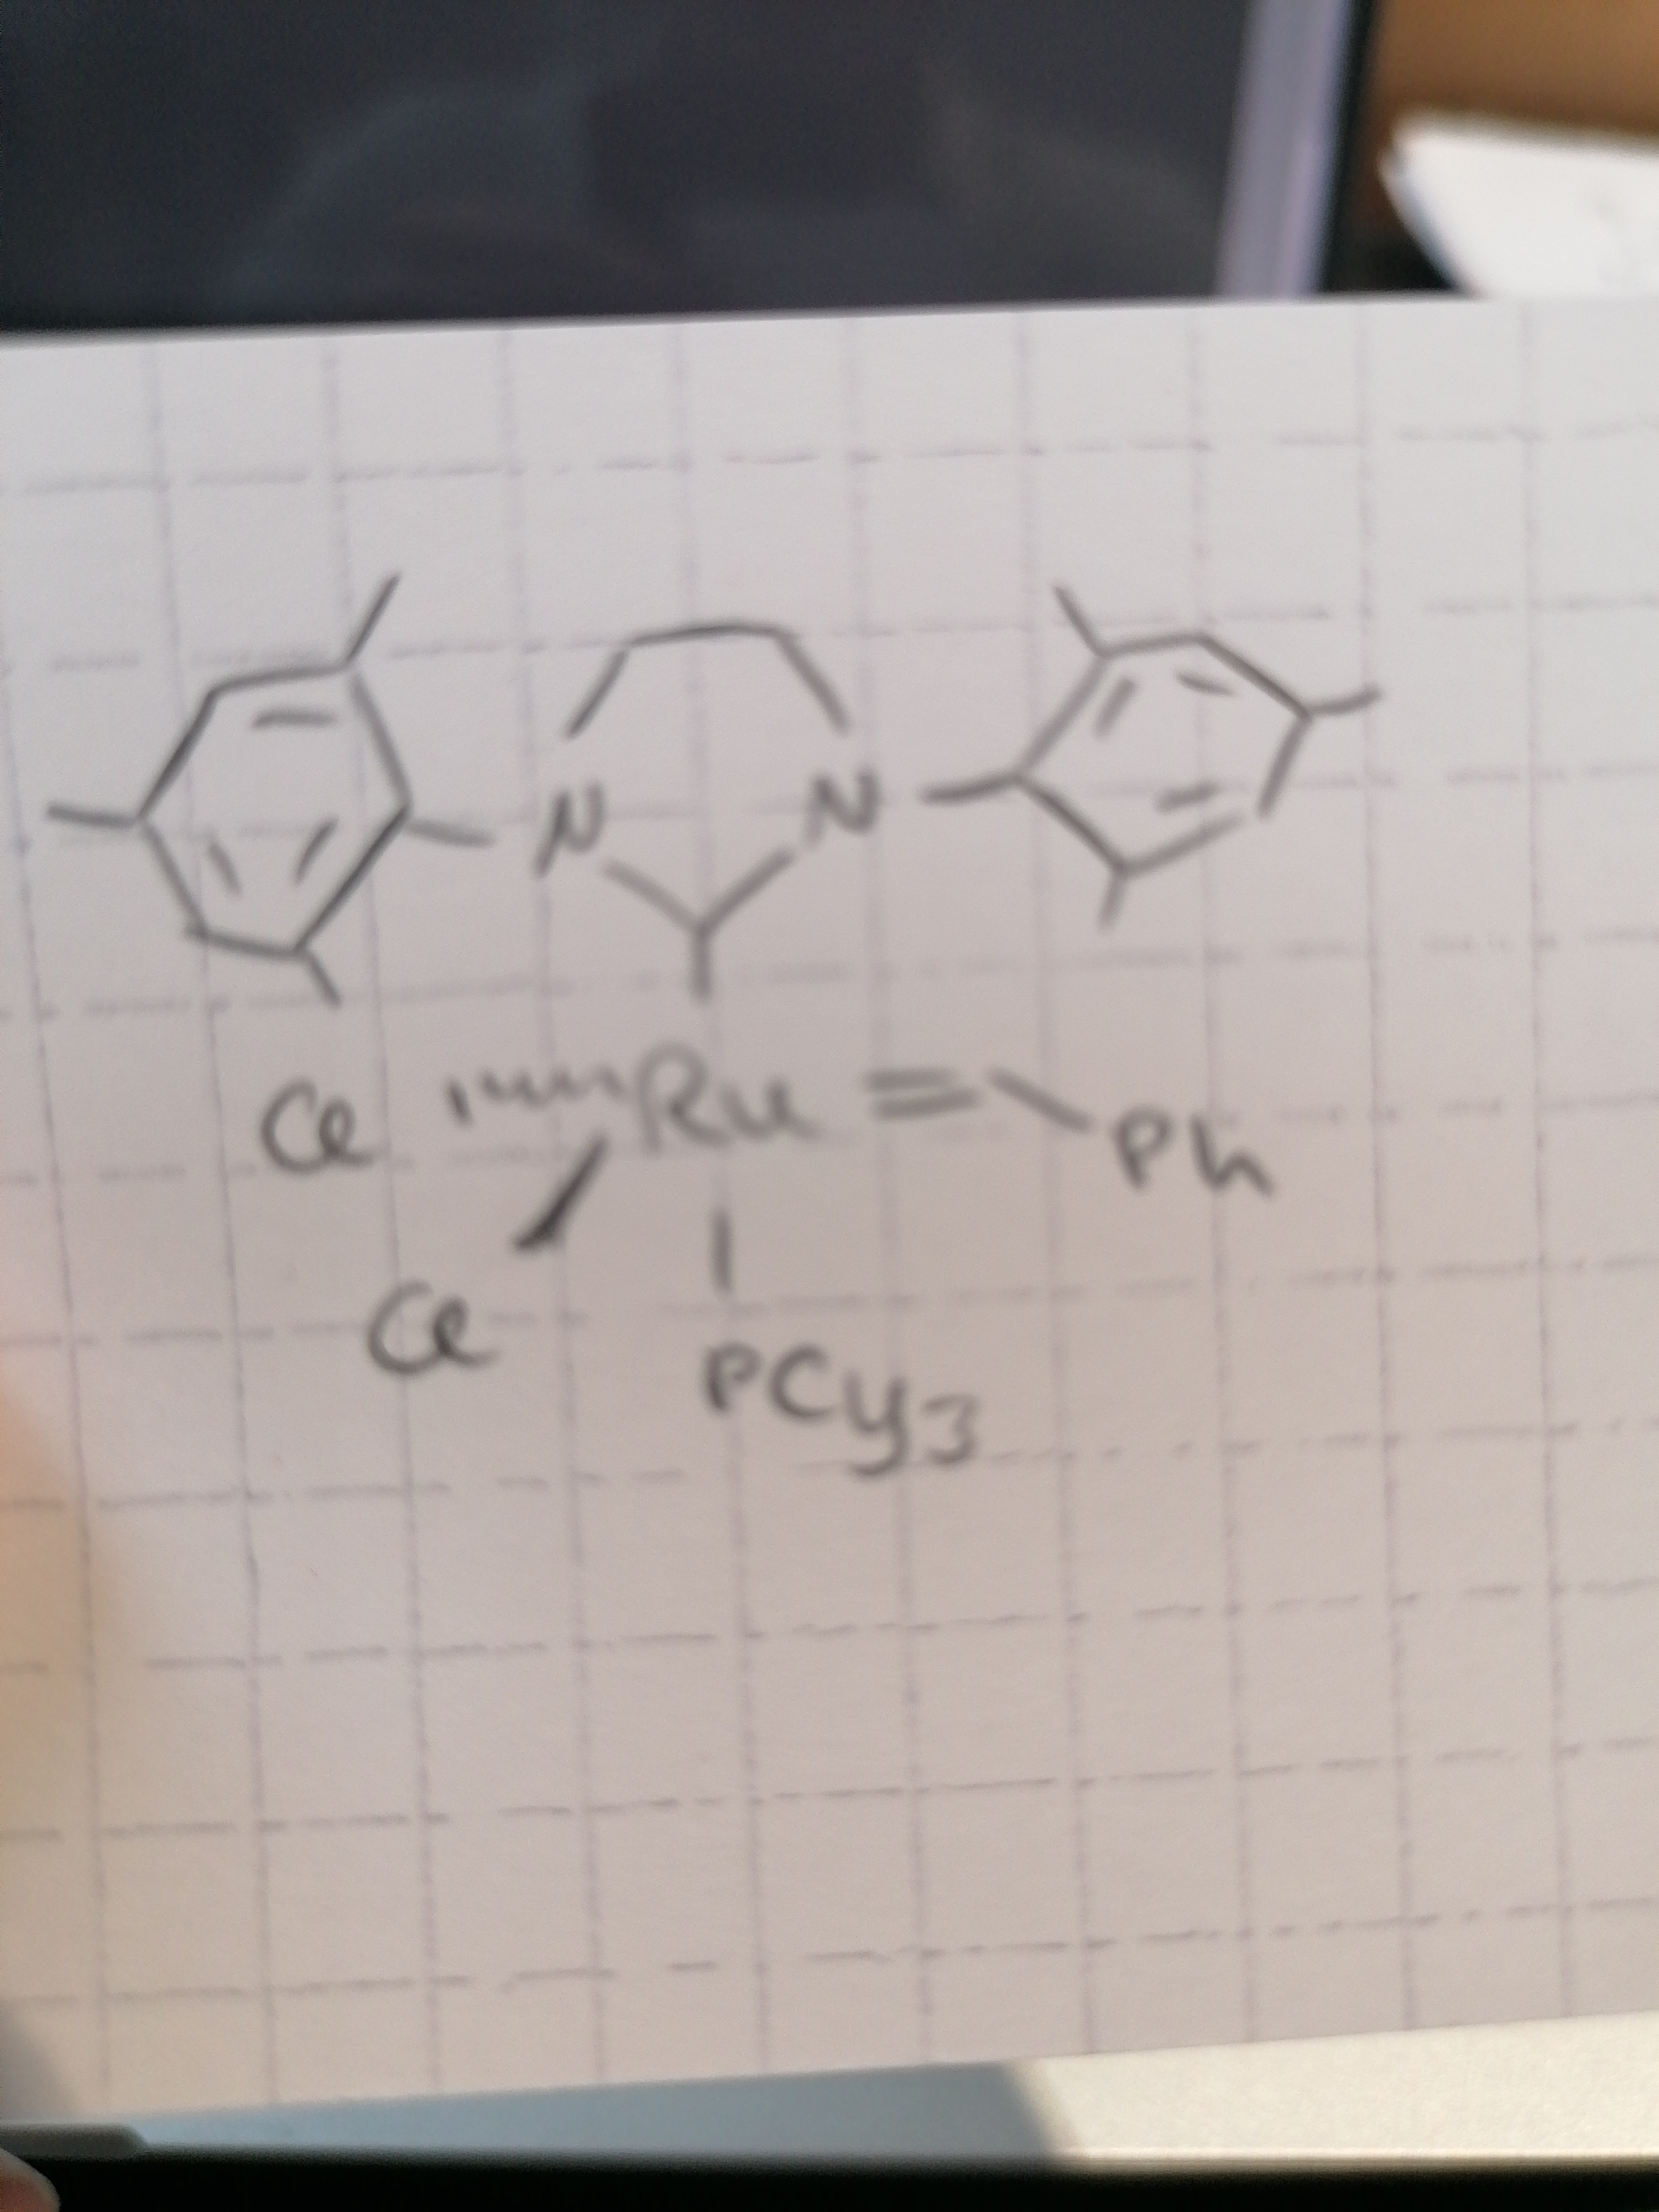 N N
Cl Ru Ph
Cl
PCy3